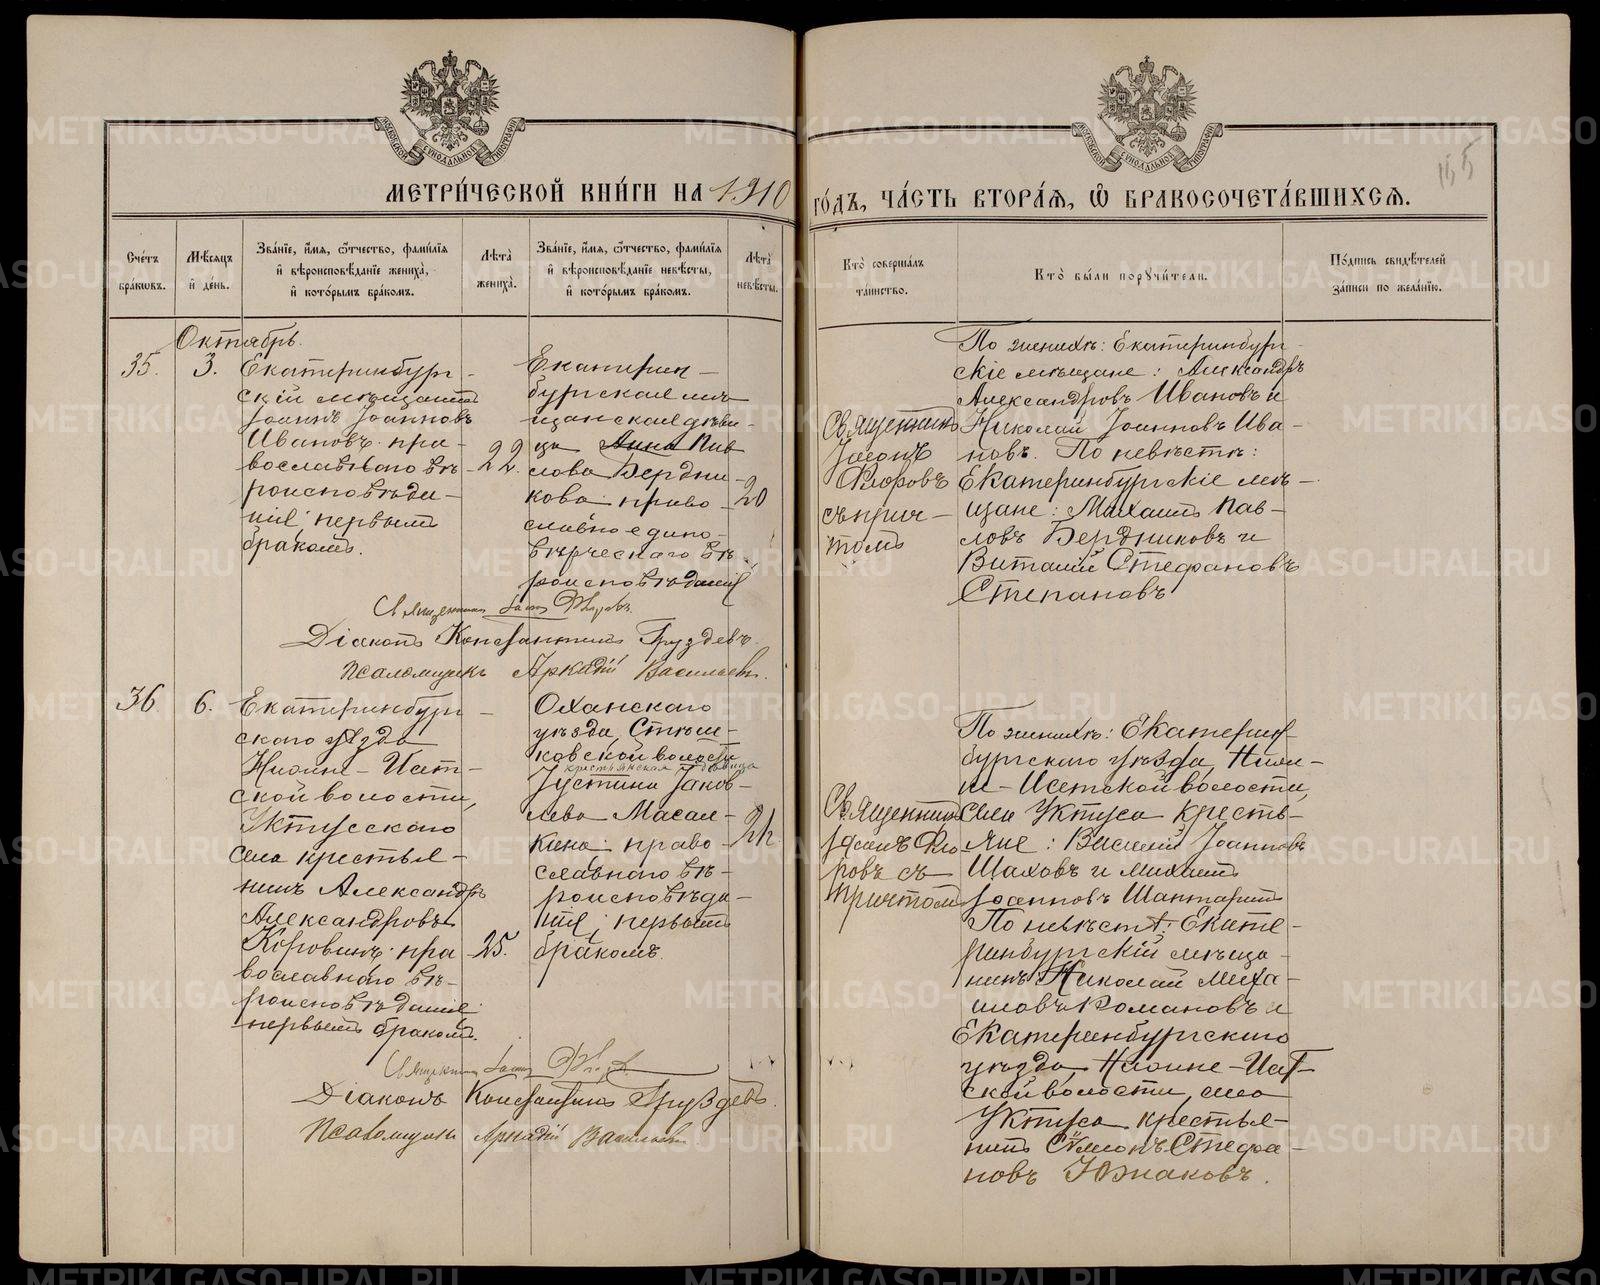 МЕТРИ́ЧЕСКОЙ КНИ́ГИ НА 1910
ГО́ДЪ, ЧА́СТЬ ВТОРА́Ѧ, Ѽ БРАКОСОЧЕТА́ВШИХСѦ.
155
Сче́тъ бра́ковъ.
Мѣ́сяцъ и́ де́нь.
Зва́нїе, и́мѧ, ѻ҆́тчество, фами́лїѧ и҆ вѣроисповѣ́данїе жениха̀, и҆ кото́рымъ бра́комъ.
Лѣта̀ жениха̀.
Зва́нїе, и́мѧ, ѻ҆́тчество, фами́лїѧ и҆ вѣроисповѣ́данїе невѣ́сты, и҆ кото́рымъ бра́комъ.
Лѣта̀ невѣ́сты.
Кто̀ соверша́лъ та́инство.
Кто̀ бы́ли порꙋчи́тели.
По́дпись свидѣ́телей за́писи по жела́нїю.
Октябрь.
35.
3.
Екатеринбург-
скій мѣщанинъ
Іоаннъ Іоанновъ
Ивановъ пра-
вославнаго вѣ-
роисповѣда-
нія, первымъ
бракомъ.
22.
Екатерин-
бургская мѣ-
щанская дѣви-
ца Анна Пав
лова Бердни-
кова право
славно едино-
вѣрческаго вѣ-
роисповѣданія
20
Священникъ
Іоаннъ
Флоровъ
съ прич-
томъ
По женихѣ: Екатеринбург-
скіе мѣщане: Александръ
Александровъ Ивановъ и
Николай Іоанновъ Ива-
новъ. По невѣстѣ:
Екатеринбургскіе мѣ-
щане: Михаилъ Пав-
ловъ Бердниковъ и
Виталій Стефановъ
Степановъ
Священникъ Іоан Флоровъ.
Діаконъ Константинъ Груздевъ.
Псаломщикъ Аркадій Васильевъ.
36
6.
Екатеринбург-
скаго уѣзда
Нижне-Исет-
ской волости,
Уктусскаго
села крестья-
нинъ Александръ
Александровъ
Коровинъ пра
вославнаго вѣ-
роисповѣданія
первымъ бракомъ.
25.
Оханскаго
уѣзда,
ковской волости
крестьянская дѣвица
Іустина Іаков-
лева Масал-
кина право
славнаго вѣ-
роисповѣда-
нія, первымъ
бракомъ.
21.
Священникъ
Іоаннъ Фло-
ровъ съ
причтомъ
По женихѣ: Екатерин-
бургскаго уѣзда, Ниж-
не-Исетской волости,
села Уктуса кресть-
яне: Василій Іоанновъ
Шаховъ и Михаилъ
Іоанновъ Шапталинъ
По невѣстѣ: Екате-
ринбургскій мѣща-
нинъ Николай Миха-
иловъ Романовъ и
Екатеринбургскаго
уѣзда, Нижне-Исет-
ской волости, села
Уктуса крестья-
нинъ Симонъ Стефа-
новъ Южаковъ.
Священникъ Іоан Флоровъ
Діаконъ Константинъ Груздевъ.
Псаломщикъ Аркадій Васильевъ
METRIKI.GASO-URAL.RU